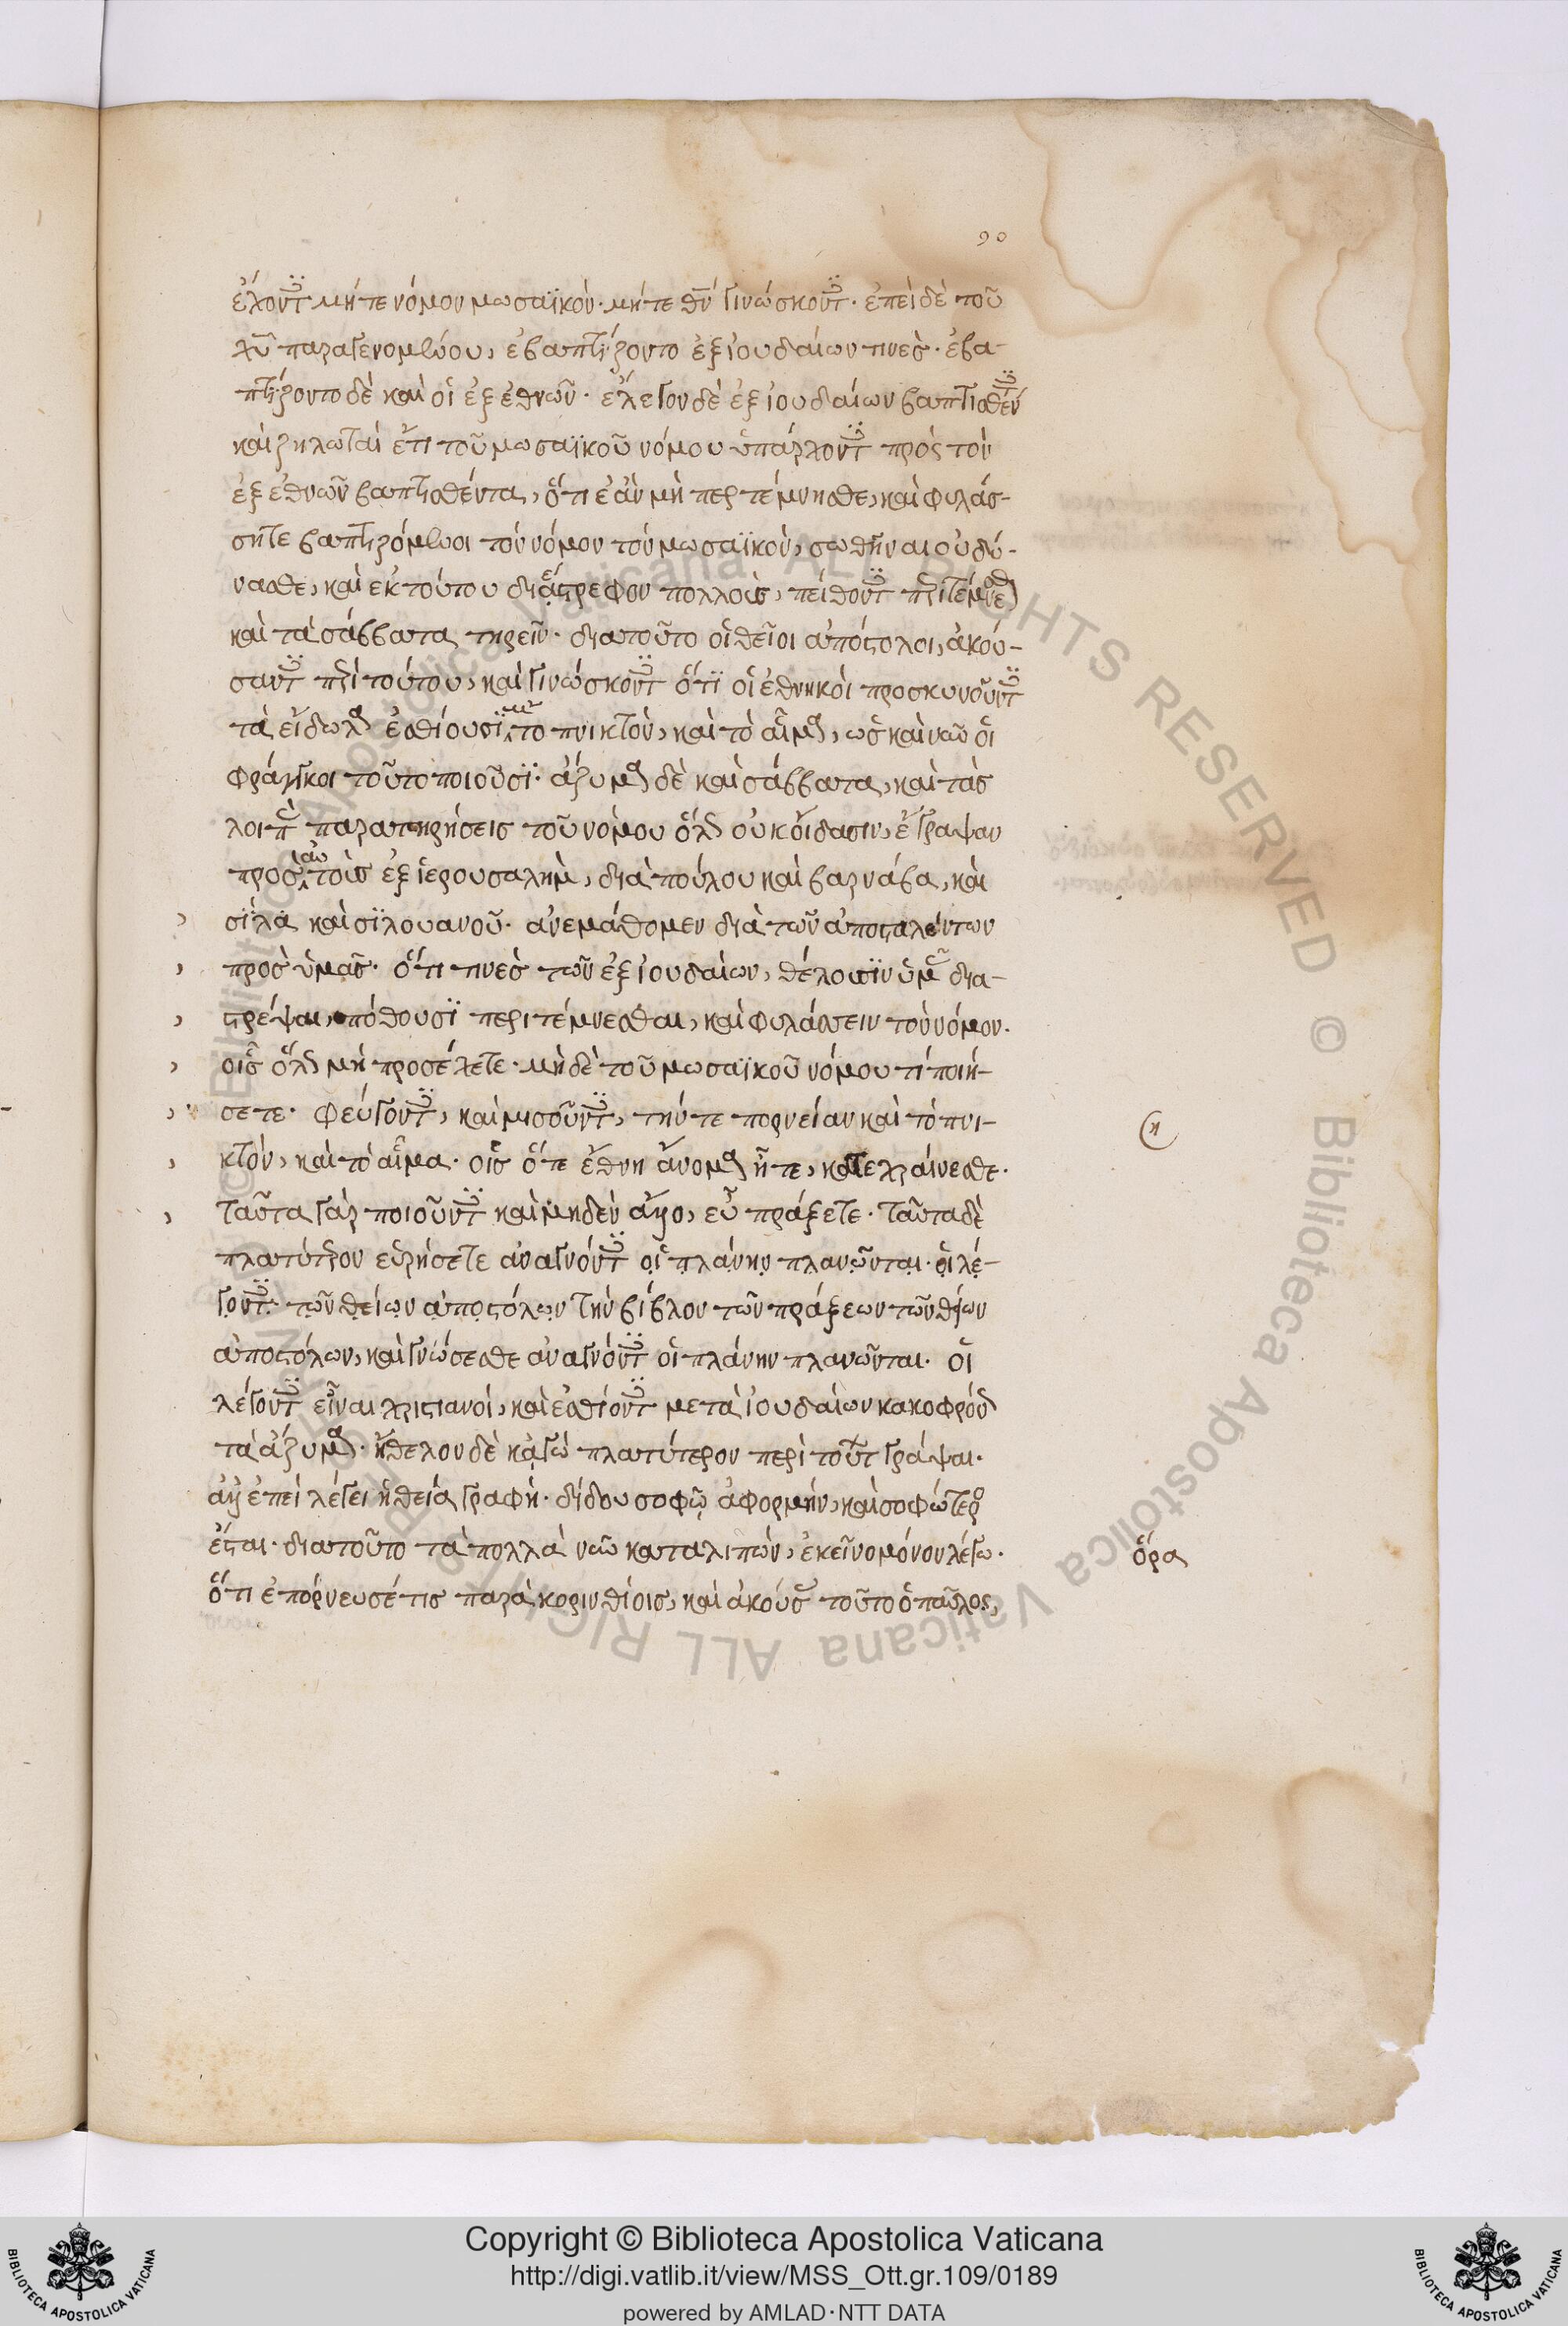 90
ἔχοντ μήτε νόμον μωσαϊκόν· μήτε θν γινώσκοντ· ἐπεὶ δὲ τοῦ
χυ παραγενομένου, ἐβαπτίζοντο ἐξ ἰουδαίων τινές· ἐβα-
πτίζοντο δὲ καὶ οἱ ἐξ ἐθνῶν· ἔλεγον δὲ ἐξ ἰουδαίων βαπτισθέν
καὶ ζηλωταὶ ἔτι τοῦ μωσαϊκοῦ νόμου ὑπάρχοντ πρὸς τὸν
ἐξ ἐθνῶν βαπτισθέντα, ὅτι ἐὰν μὴ περιτέμνησθε, καὶ φυλάσ-
σητε βαπτιζόμενοι τὸν νόμον τὸν μωσαϊκὸν, σωθῆναι οὐ δύ-
νασθε, καὶ ἐκ τούτου διέστρεφον πολλοὺς, πείθοντ περιτέμνεσθ
καὶ τὰ σάββατα τηρεῖν· διατοῦτο οἱ θεῖοι ἀπόστολοι, ἀκού-
σαντ περὶ τούτου, καὶ γινώσκοντ ὅτϊ οἱ ἐθνηκοὶ προσκυνοῦντ
τὰ εἴδωλα ἐσθίουσϊ τὸ πνικτὸν, καὶ τὸ αἷμα, ὡς καὶ νῦν οἱ
φράγκοι τοῦτο ποιοῦσϊ· ἄζυμα δὲ καὶ σάββατα, καὶ τὰς
λοιπὰς παρατηρήσεις τοῦ νόμου ὅλως οὐκ οἴδασιν, ἔγραψαν
πρὸς αὐτοὺς ἐξ ἱερουσαλὴμ, διὰ παύλου καὶ βαρνάβα, καὶ
σίλα καὶ σϊλουανοῦ· ἀνεμάθομεν διὰ τῶν ἀποσταλέντων
πρὸς ὑμᾶς· ὅτι τινὲς τῶν ἐξ ἰουδαίων, θέλουσϊν ὑμᾶς δια-
στρέψαι, πόθουσϊ περιτέμνεσθαι, καὶ φυλάσσειν τὸν νόμον·
οἷς ὅλως μὴ προσέχετε· μὴ δὲ τοῦ μωσαϊκοῦ νόμου τί ποιή-
σετε· φεύγοντ, καὶ μισοῦντ, τήν τε πορνείαν καὶ τὸ πνι-
κτὸν, καὶ τὸ αἷμα· οἷς ὅτε ἔθνη ἄνομα ἦτε, κατεχραίνεσθε·
ταῦτα γὰρ ποιοῦντ καὶ μηδὲν ἄλλο, εὖ πράξετε· ταῦτα δὲ
πλατύτερον εὑρήσετε ἀναγνόντ οἱ πλάνην πλανῶνται· οἱ λέ-
γοντ· τῶν θείων ἀποστόλων τὴν βίβλον τῶν πράξεων τῶν θείων
ἀποστόλων, καὶ γνώσεσθε ἀναγνόντ οἱ πλάνην πλανῶνται· οἱ
λέγοντ εἶναι χριστιανοί, καὶ ἐσθίοντ μετὰ ἰουδαίων κακοφρόν
τὰ ἄζυμα· ἤθελον δὲ κἀγὼ πλατύτερον περὶ τούτ γράψαι·
ἀλλ ἐπεὶ λέγει ἡ θεία γραφή· δίδου σοφῷ ἀφορμήν, καὶ σοφώτερο
ἔσται· διατοῦτο τὰ πολλὰ νῦν καταλιπὼν, ἐκεῖνο μόνον λέγω·
ὅτι ἐπόρνευσέ τις παρὰ κορινθίοις, καὶ ἀκούσας τοῦτο ὁ παῦλος,
ὅρα
Copyright © Biblioteca Apostolica Vaticana
http://digi.vatlib.it/view/MSS_Ott.gr.109/0189
powered by AMLAD·NTT DATA